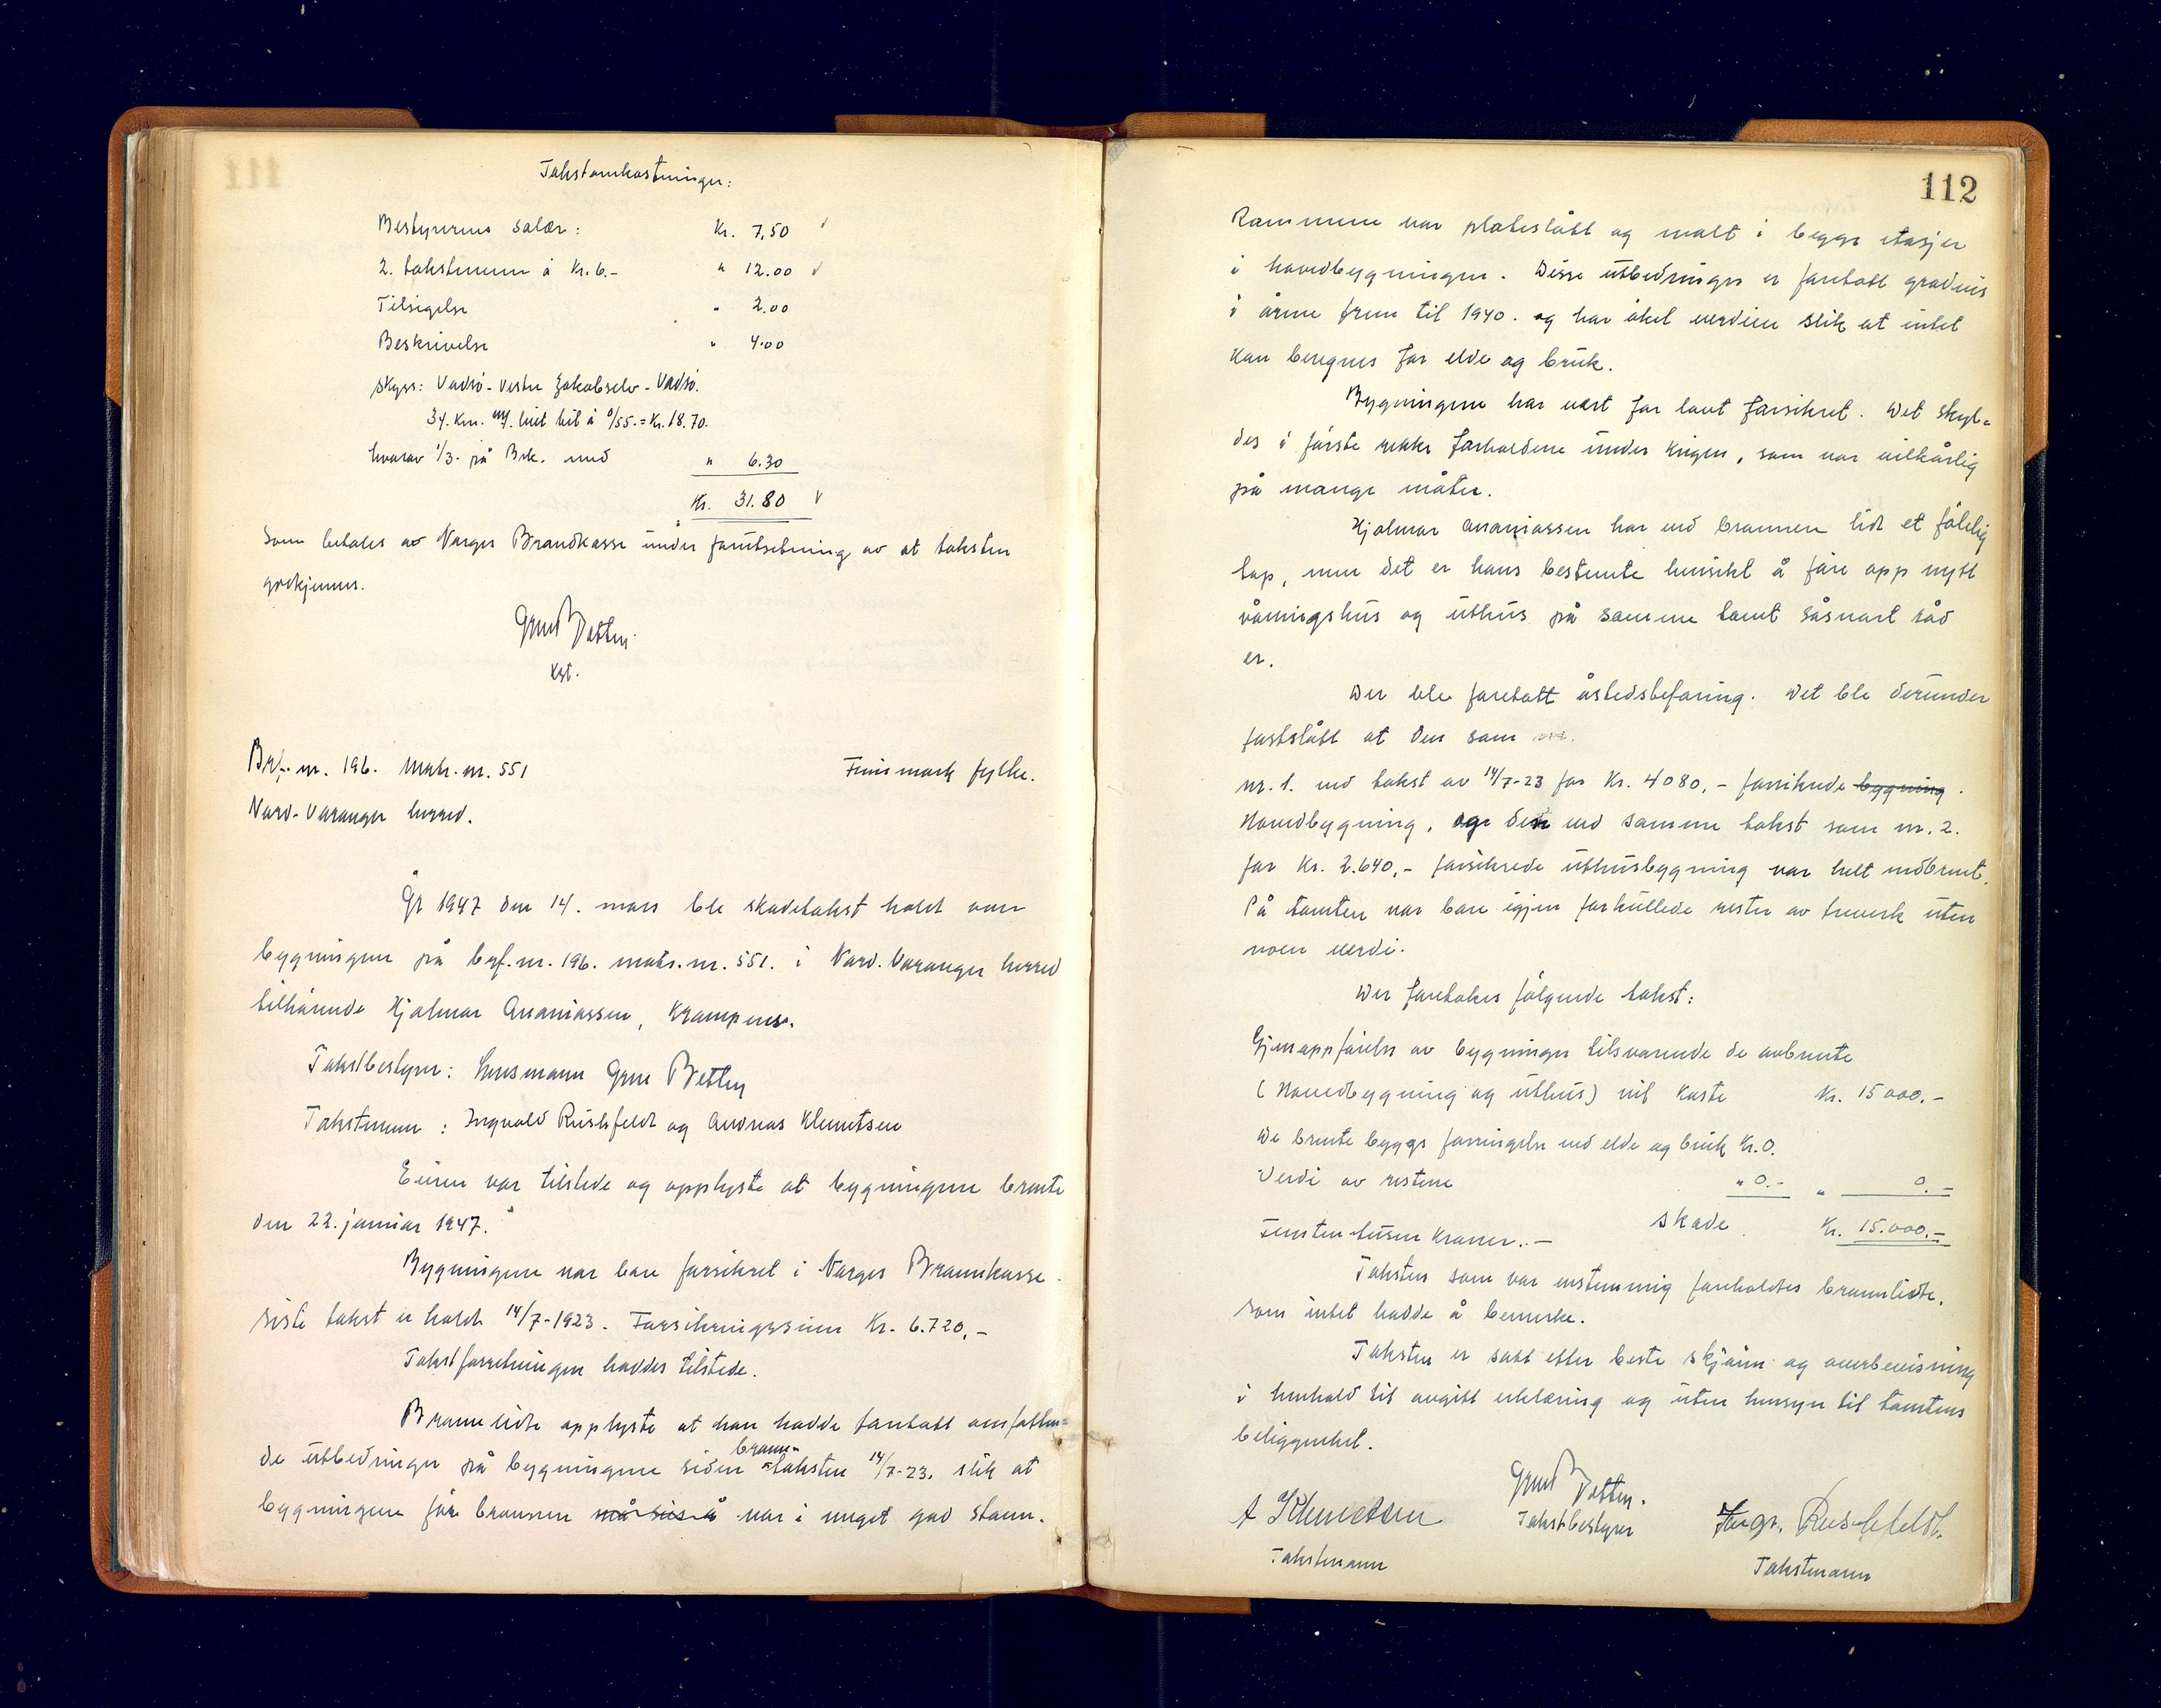 Takstomkostninger:
Bestyrerens salær: Kr. 7,50 ✓
2. takstmenn à Kr. 6.- " 12.00 ✓
Tilsigelse " 2.00
Beskrivelse " 4.00
Skyss: Vadsø - Vestre Jakobselv - Vadsø.
34. Km. m/ leiet bil à 0/55. = Kr. 18.70.
hvorav 1/3. på Brk. med " 6.30
Kr. 31.80 ✓
Som betales av Norges Brandkasse under forutsetning av at taksten
godkjennes.
Betten
kst.
Brf. nr. 196. Matr. nr. 551 Finnmark fylke.
Nord-Varanger herred.
År 1947 den 14. mars ble skadetakst holdt over
bygningene på brf. nr. 196. matr. nr. 551. i Nord-Varanger herred
tilhørende Hjalmar Ananiassen, Krampenes.
Takstbestyrer: lensmann Betten
Takstmenn: Ingvald Rushfeldt og Andreas Klemetsen
Eieren var tilstede og opplyste at bygningene brente
den 22. januar 1947.
Bygningene var bare forsikret i Norges Brannkasse.
Siste takst er holdt 14/7-1923. Forsikringssum Kr. 6.720,-
Takstforretningen haddes tilstede.
Brannlidte opplyste at han hadde foretatt omfatten=
de utbedringer på bygningene siden brann-taksten 14/7-23. slik at
bygningene før brannen var i meget god stann.
112
Rommene var plateslått og malt i begge etasjer
i hovedbygningen. Disse utbedringer er foretatt gradvis
i årene frem til 1940. og har øket verdien slik at intet
kan beregnes for elde og bruk.
Bygningene har vært for lavt forsikret. Det skyl-
des i første rekke forholdene under krigen, som var vilkårlig
på mange måter.
Hjalmar Ananiassen har ved brannen lidt et følelig
tap, men det er hans bestemte hensikt å føre opp nytt
våningshus og uthus på samme tomt såsnart råd
er.
Der ble foretatt åstedsbefaring. Det ble derunder
fastslått at den som
nr. 1. ved takst av 14/7-23 for Kr. 4080,- forsikrede bygning.
Hovedbygning, og den ved samme takst som nr. 2.
for Kr. 2.640,- forsikrede uthusbygning var helt nedbrent.
På tomten var bare igjen forkullede rester av treverk uten
noen verdi.
Der foretokes følgende takst:
Gjenoppførelse av bygninger tilsvarende de avbrente
(Hovedbygning og uthus) vil koste Kr. 15000.-
De brente byggs forringelse ved elde og bruk Kr. 0.
Verdi av restene " 0.- " 0.-
Skade Kr. 15.000.-
Femten tusen kroner.-
Taksten som var enstemmig foreholdtes brannlidte,
som intet hadde å bemerke.
Taksten er satt etter beste skjønn og overbevisning
i henhold til avgitt erklæring og uten hensyn til tomtens
beliggenhet.
Betten.
A Klemetsen Takstbestyrer Ingv. Rushfeldt.
Takstmann Takstmann